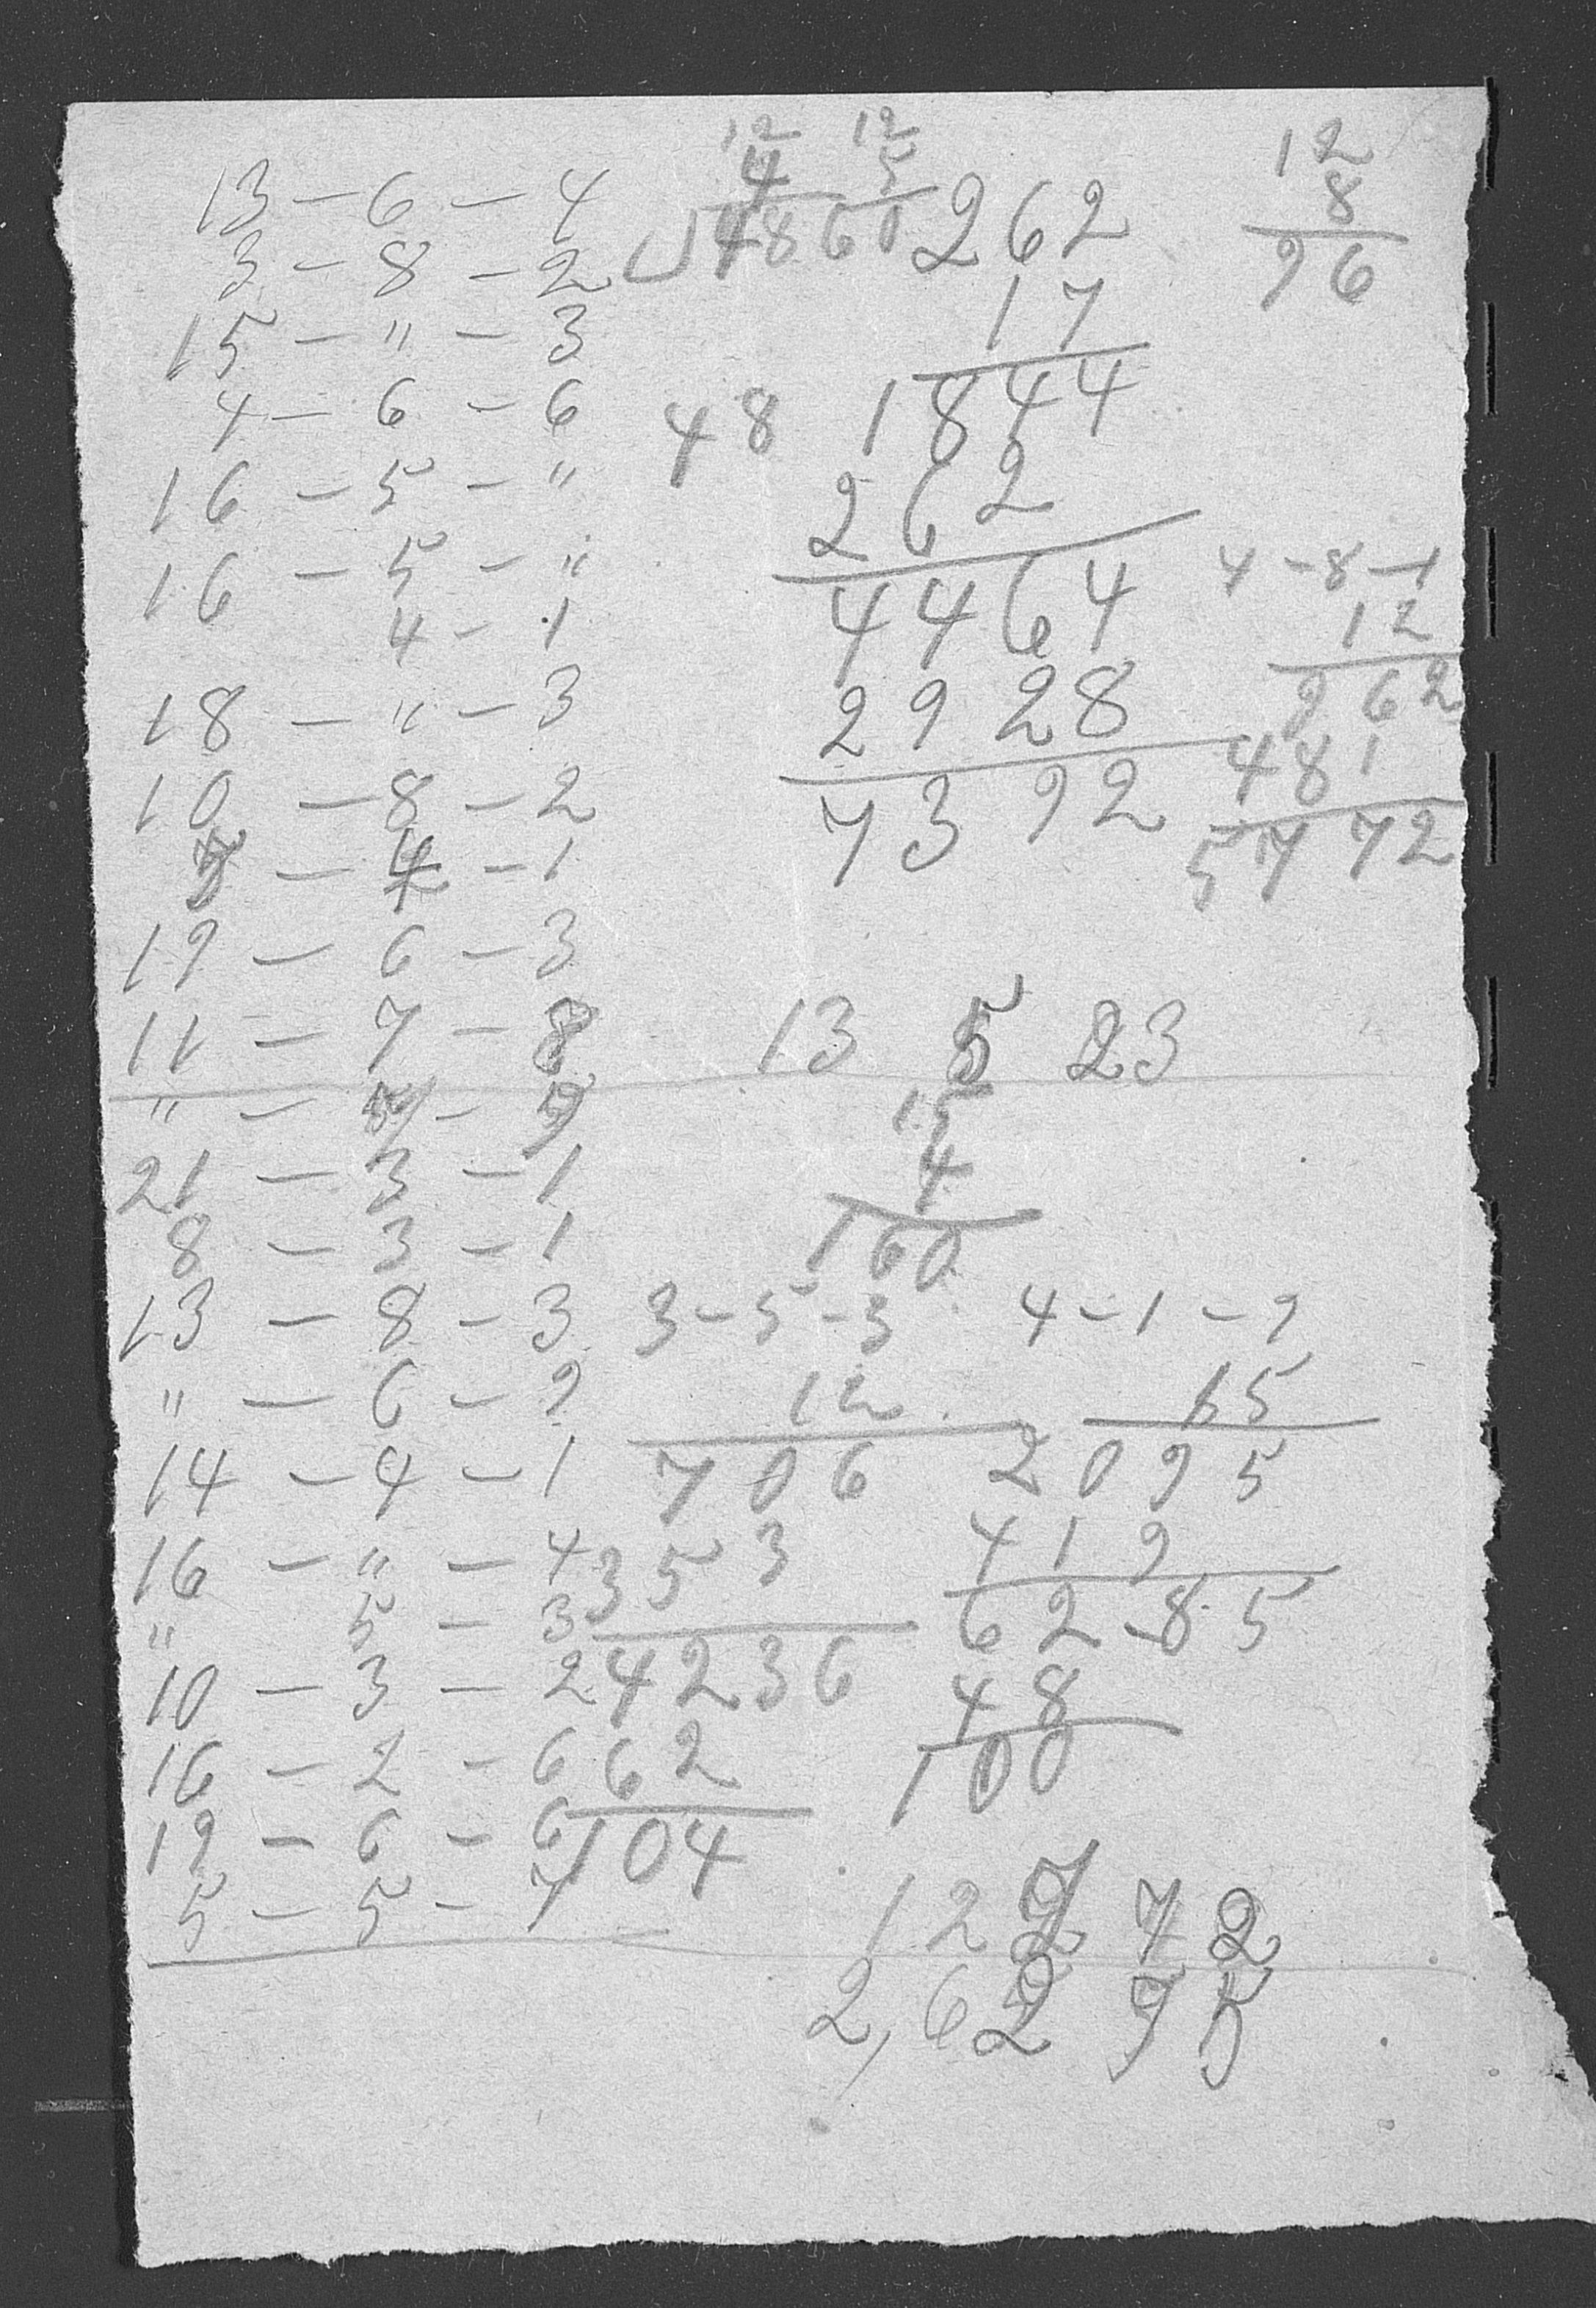 13 – 6 – 4
3 – 8 – 2
15 – " – 3
4 – 6 – 6
16 – 5 – "
16 – 5 – "
4 – 1
18 – " – 3
10 – 8 – 2
– 4 – 1
19 – 6 – 3
11 – 7 – 8
" – – 9
21 – 3 – 1
8 – 3 – 1
13 – 8 – 3
" – 6 – 9
14 – 4 – 1
16 – " – 4
" 5 – 3
10 – 3 – 2
16 – 2 – 6
19 – 6 – 6
5 – 5 – 7
12 12
4 5
48 60
48
262
17
1844
262
4464
2928
7392
12
8
96
4 – 8 – 1
12
962
481
5772
13 5 23
15
4
160
3 – 5 – 3
12
706
353
4236
62
104
4 – 1 – 9
15
2095
419
62 85
48
100
12 7 2
2,62 9 5